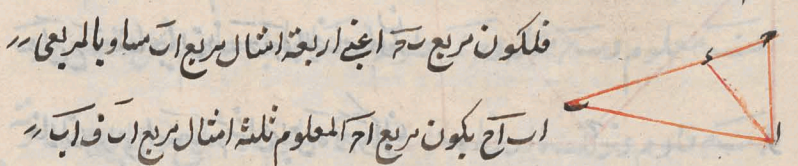 فلكون مربع ب ح اعنى اربعة امثال مربع اب مساويا لمربعى
اب اح يكون مربع اح المعلوم ثلثة امثال مربع اب ف اب
ح
ء
ب
ا